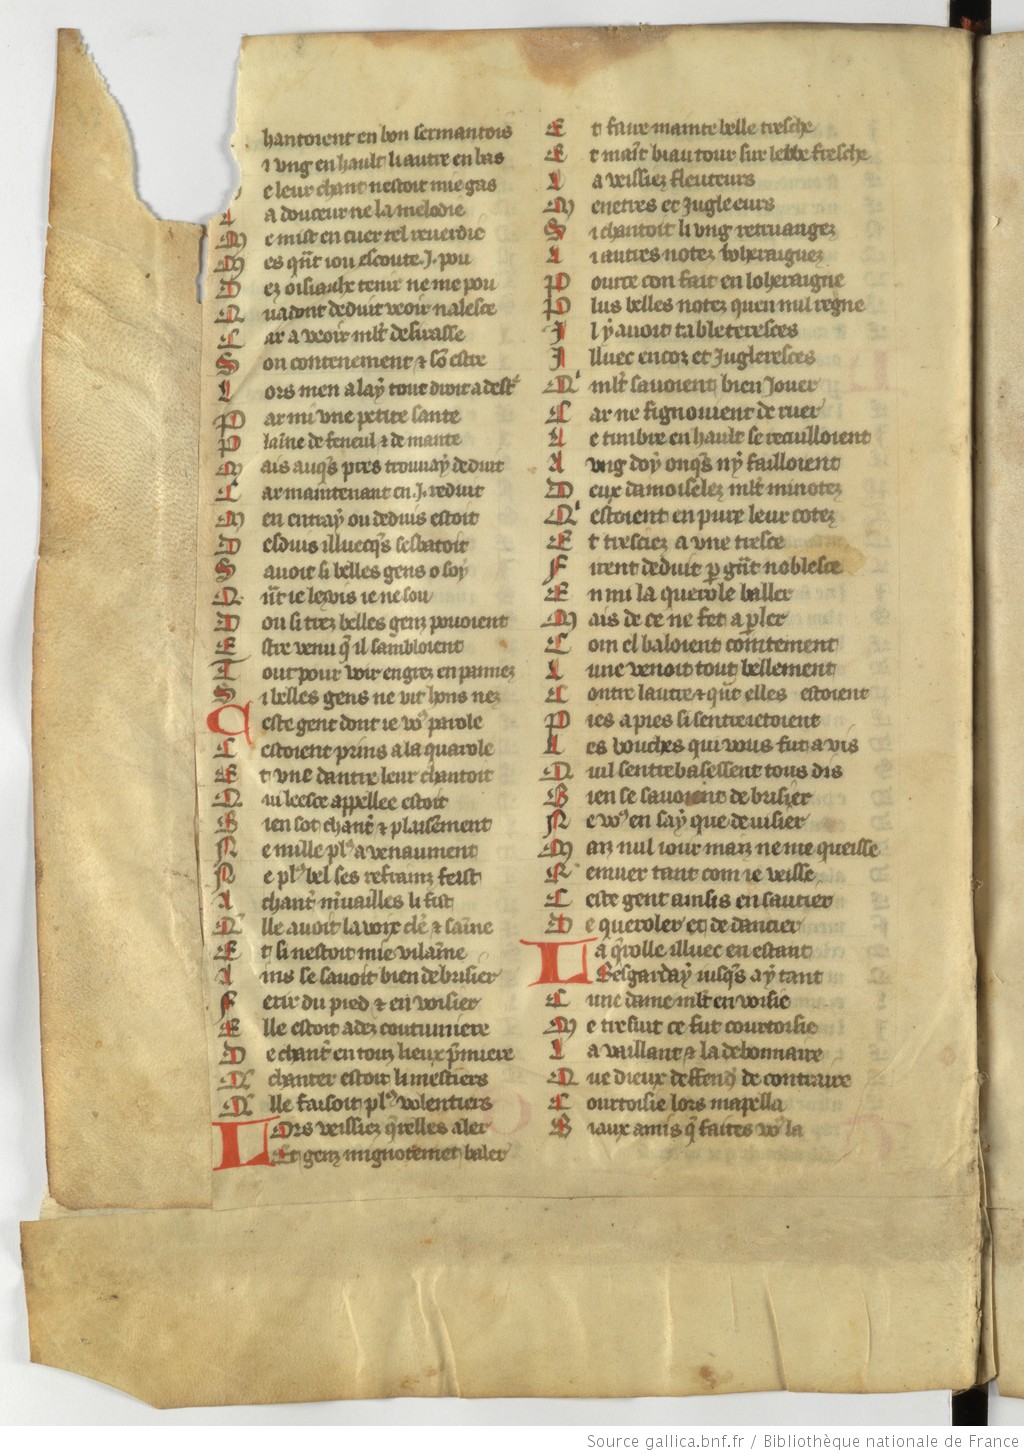 hantoient en bon sermantois
i vng en hault li autre en bas
e leur chant nestoit mie gas
L a douceur ne la melodie
M e mist en cuer tel reuerdie
M es qñt iou escoute .J. pou
D ez oisiaulx tenir ne me pou
Q ua dont deduit veoir nalasce
C ar a veoir ml't desirasse
S on contenement & sõ estre
L ors men alay tout droit a dest'
P ar mi vne petite sante
P laĩne de feneul & de mante
M ais auqs pres trouuay deduit
C ar maintenant en .J. reduit
M en entray ou deduis estoit
D esduis illuecqs sesbatoit
S auoit si belles gens o soy
Q ñt ie les vis ie ne soy
D ou si trez belles genz pouoient
E stre venu q̃ il sambloient
T out pour voir engrez en pannez
S i belles gens ne vit hons nez
C este gent dont ie vo9 parole
C estoient prins a la quarole
E t vne dantre leur chantoit
Q ui leesce appellee estoit
B ien sot chant' & plaisẽment
N e mille pl9 auenaument
N e pl9 bel ses refrainz feist
A chant' m'uailles li fust
Q lle auoit la voix cle' & saĩne
E t si nestoit mie vilaĩne
A ins se sauoit bien debrisier
F erir du pied & enuoisier
E lle estoit adez coutumiere
D e chant' en touz lieux p'miere
Q chanter estoit li mestiers
Q lle faisoit pl9 volentiers
L Ors veissiez qrelles aler
Et genz mignotemẽt baler
E t faire mainte belle tresche
E t mai't biau tour sur lerbe fresche
L a veissiez fleuteurs
M enetres et Jugleeurs
S i chantoit li vng retruangez
L i autres notez loheraignez
P ource con fait en loheraigne
P lus belles notez quen nul regne
J l y auoit tableteresces
J lluec encoz et Jugleresces
Q' ml't sauoient bien Jouer
C ar ne fignouient de ruer
L e timbre en hault se recuilloient
A vng doy onqs ny failloient
D eux damoiselez ml't minotez
Q' estoient en pure leur cotez
E t tresciez a vne tresce
F irent deduit p gñt noblesce
E n mi la querole baller
M ais de ce ne fet a pler
C om el baloient cointement
L une venoit tout bellement
C ontre lautre & qñt elles estoient
P ies a pies si sentreietoient
L es bouches qui vous fut auis
Q uil sentrebasessent tous dis
B ien se sauoient debrisier
N e vo9 en say que deuisier
M aiz nul iour maiz ne me queisse
R emuer tant com ie veisse
C este gent ainsis en sautier
D e queroler et de dancier
L a q̃rolle illuec en estant
Resgarday iusqs a y tant
C une dame ml't enuoisie
M e tresuit ce fut courtoisie
L a vaillant & la debonnaire
Q ue dieux deffend' de contraire
C ourtoisie lors mapella
B iaux amis q̃ faites vo9 la
Source gallica.bnf.fr / Bibliothèque nationale de France